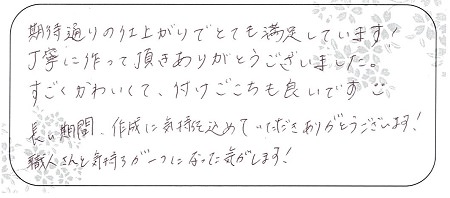 期待通りの仕上がりでとても満足しています!
丁寧に作って頂きありがとうございました。
すごくかわいくて、付けごこちも良いです
長い期間、作成に気持を込めていただきありがとうございます!
職人さんと気持ちが一つになった気がします!